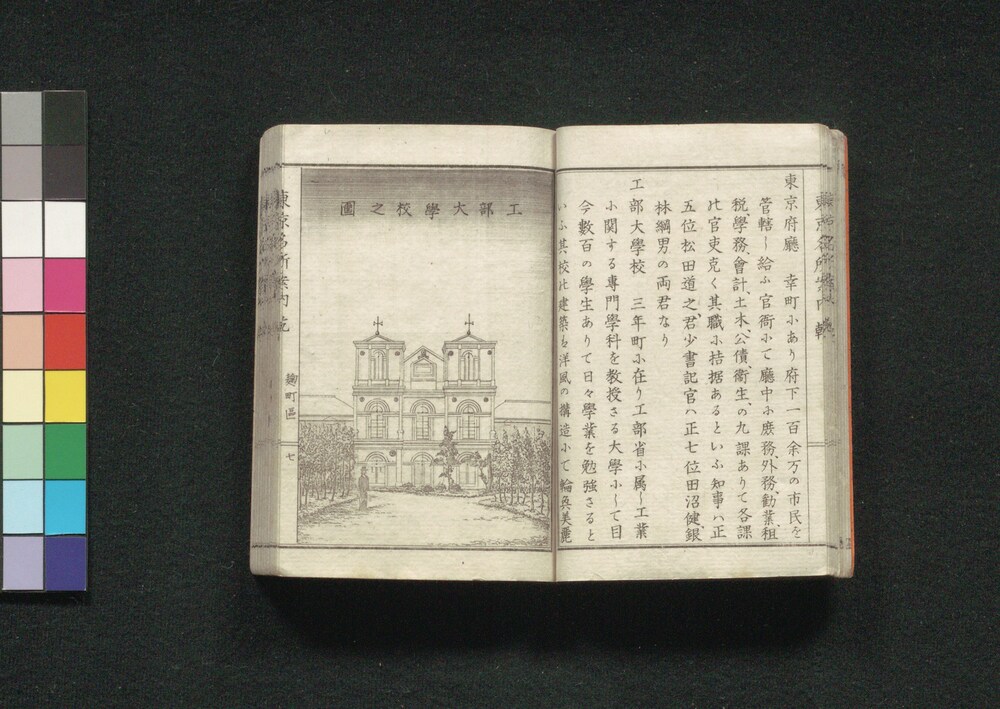 東京府廳　幸町小あり府下一百余万の市民を
管轄し給ふ官衙小て廳中小庶務、外務、勸業、租
税、學務、會計、土木、公債、衛生、の九課ありて各課
此官吏克く其職小拮据あるといふ知事ハ正
五位松田道之君少書記官ハ正七位田沼健、銀
林綱男の両君なり
工部大學校　三年町小在り工部省小属し工業
小関する専門學科を教授さる大學小して目
今數百の學生ありて日々學業を勉強さると
いふ其校此建築も洋風の搆造小て輪奐美麗
工部大學校之圖
東京名所案内　乾
麹町區
七